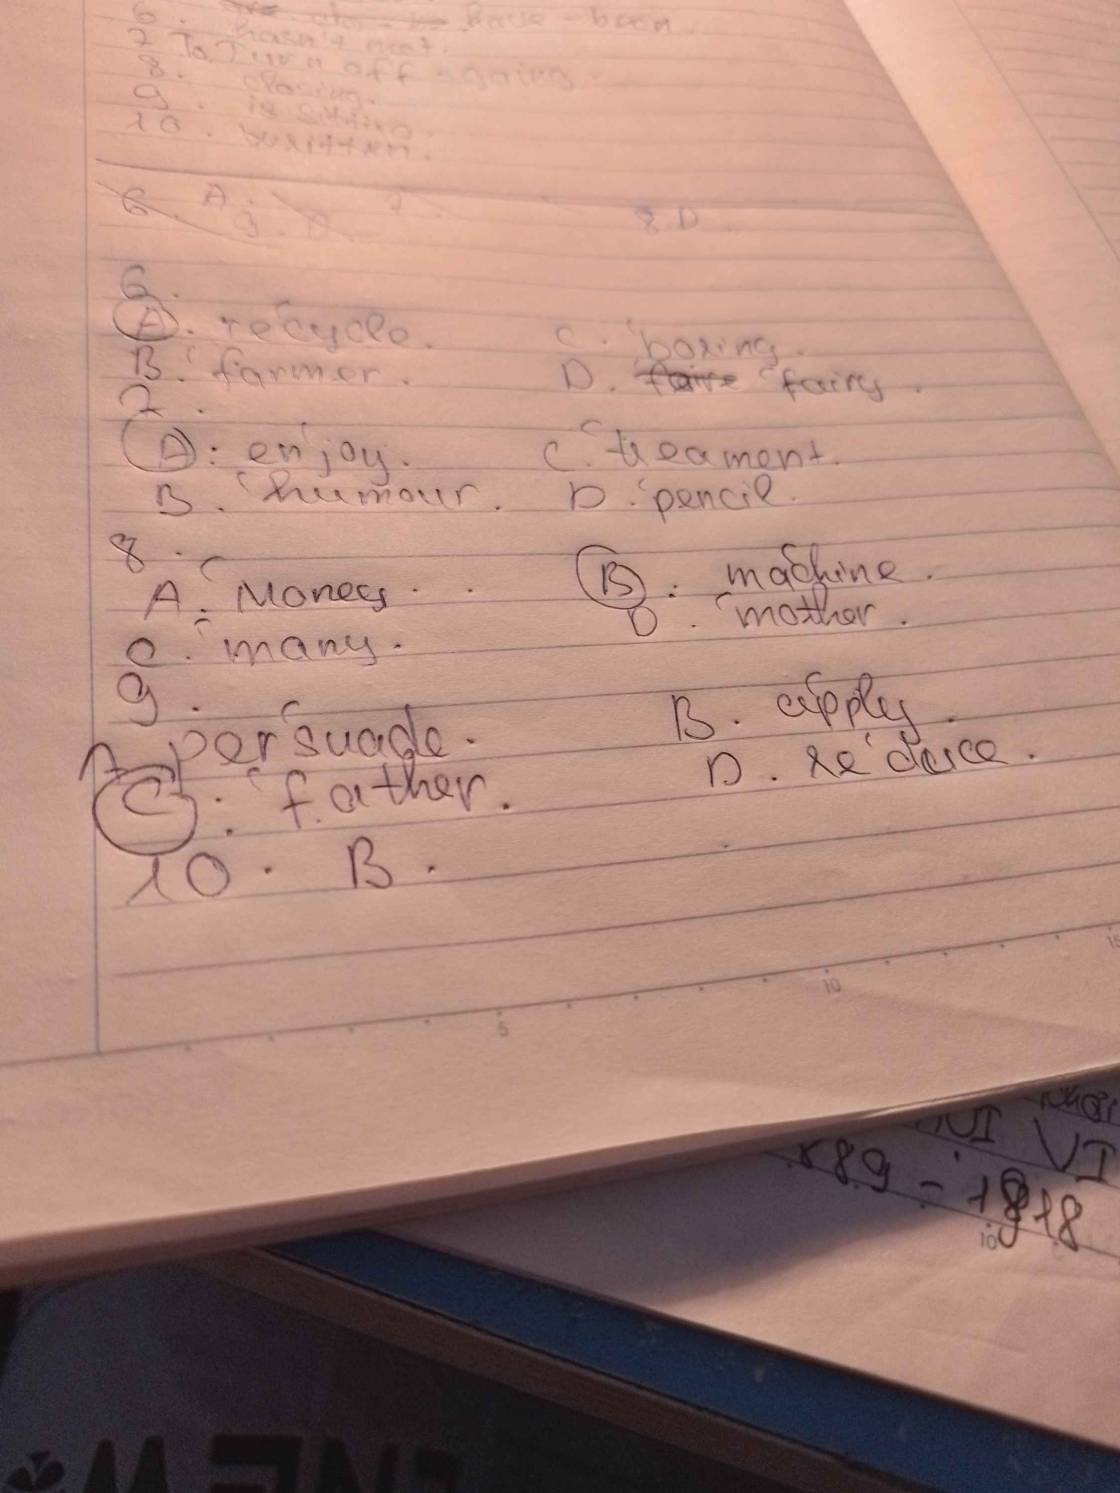 6. have - been
hasn't met.
7 To Turn off - going
8. closing.
9. is sitting
10. writtem.
6. A.
9. A 8. D.
6.
A. re'cycle. C. 'boxing.
B. 'farmer. D. 'fairy.
7.
A. en'joy. C. 'treament.
B. 'humour. D. 'pencil.
8.
A. 'Money. B. ma'chine.
C. 'many. D. 'mother.
9.
A per'suade. B. a'pply.
C. 'father. D. re'duce.
10. B.
5 10 15
VI VI
1889 - 1918
10